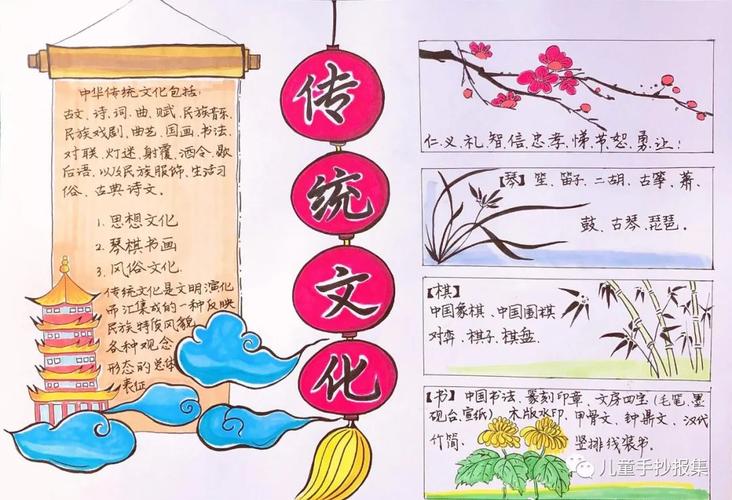 中华传统文化包括:
古文、诗、词、曲、赋、民族音乐、
民族戏剧、曲艺、国画、书法、
对联、灯迷、射覆、酒令、歇
后语、以及民族服饰、生活习
俗、古典诗文。
1. 思想文化
2. 琴棋书画
3. 风俗文化.
传统文化是文明演化
而汇集成的一种反映
民族特质风貌
各种观念
形态的总体
表征
传
统
文
化
仁、义、礼、智、信、忠、孝、悌、节、恕、勇、让:
【琴】笙、笛子、二胡、古筝、萧、
鼓、古琴、琵琶。
【棋】
中国象棋、中国围棋
对弈、棋子、棋盘.
【书】中国书法、篆刻印章、文房四宝(毛笔、墨
砚台、宣纸)、木版水印、甲骨文、钟鼎文、汉代
竹简、竖排线装书.
儿童手抄报集